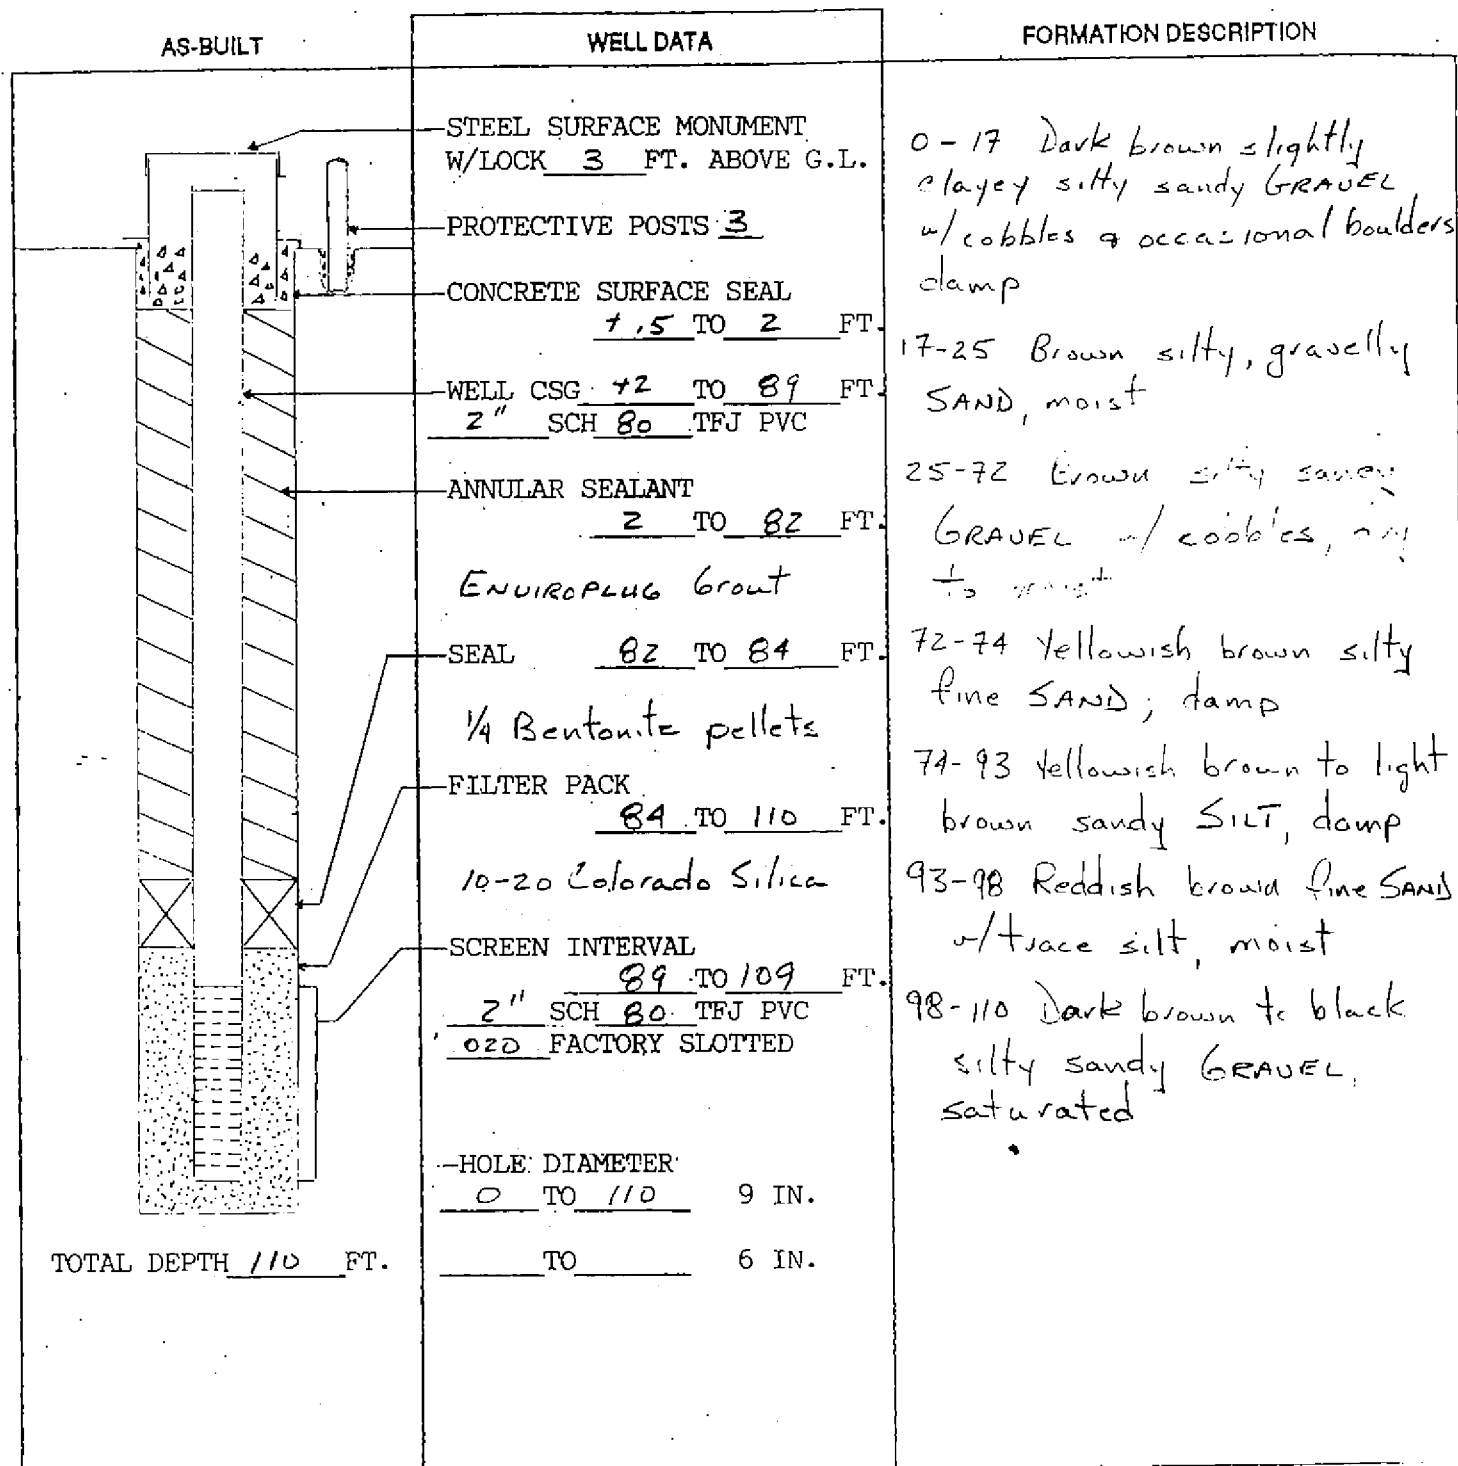 AS-BUILT
WELL DATA
FORMATION DESCRIPTION
STEEL SURFACE MONUMENT
W/LOCK 3 FT. ABOVE G.L.
PROTECTIVE POSTS 3
CONCRETE SURFACE SEAL
+.5 TO 2 FT.
WELL CSG +2 TO 89 FT.
2" SCH 80 TFJ PVC
ANNULAR SEALANT
2 TO 82 FT.
ENVIROPLUG Grout
SEAL 82 TO 84 FT.
1/4 Bentonite pellets
FILTER PACK
84 TO 110 FT.
10-20 Colorado Silica
SCREEN INTERVAL
89 TO 109 FT.
2" SCH 80 TFJ PVC
.020 FACTORY SLOTTED
HOLE DIAMETER
0 TO 110 9 IN.
TO 6 IN.
TOTAL DEPTH 110 FT.
0-17 Dark brown slightly
clayey silty sandy GRAVEL
w/ cobbles & occasional boulders
damp
17-25 Brown silty, gravelly
SAND, moist
25-72 Brown silty sandy
GRAVEL w/ cobbles,
to moist
72-74 Yellowish brown silty
fine SAND; damp
74-93 Yellowish brown to light
brown sandy SILT, damp
93-98 Reddish brown fine SAND
w/ trace silt, moist
98-110 Dark brown to black
silty sandy GRAVEL,
saturated